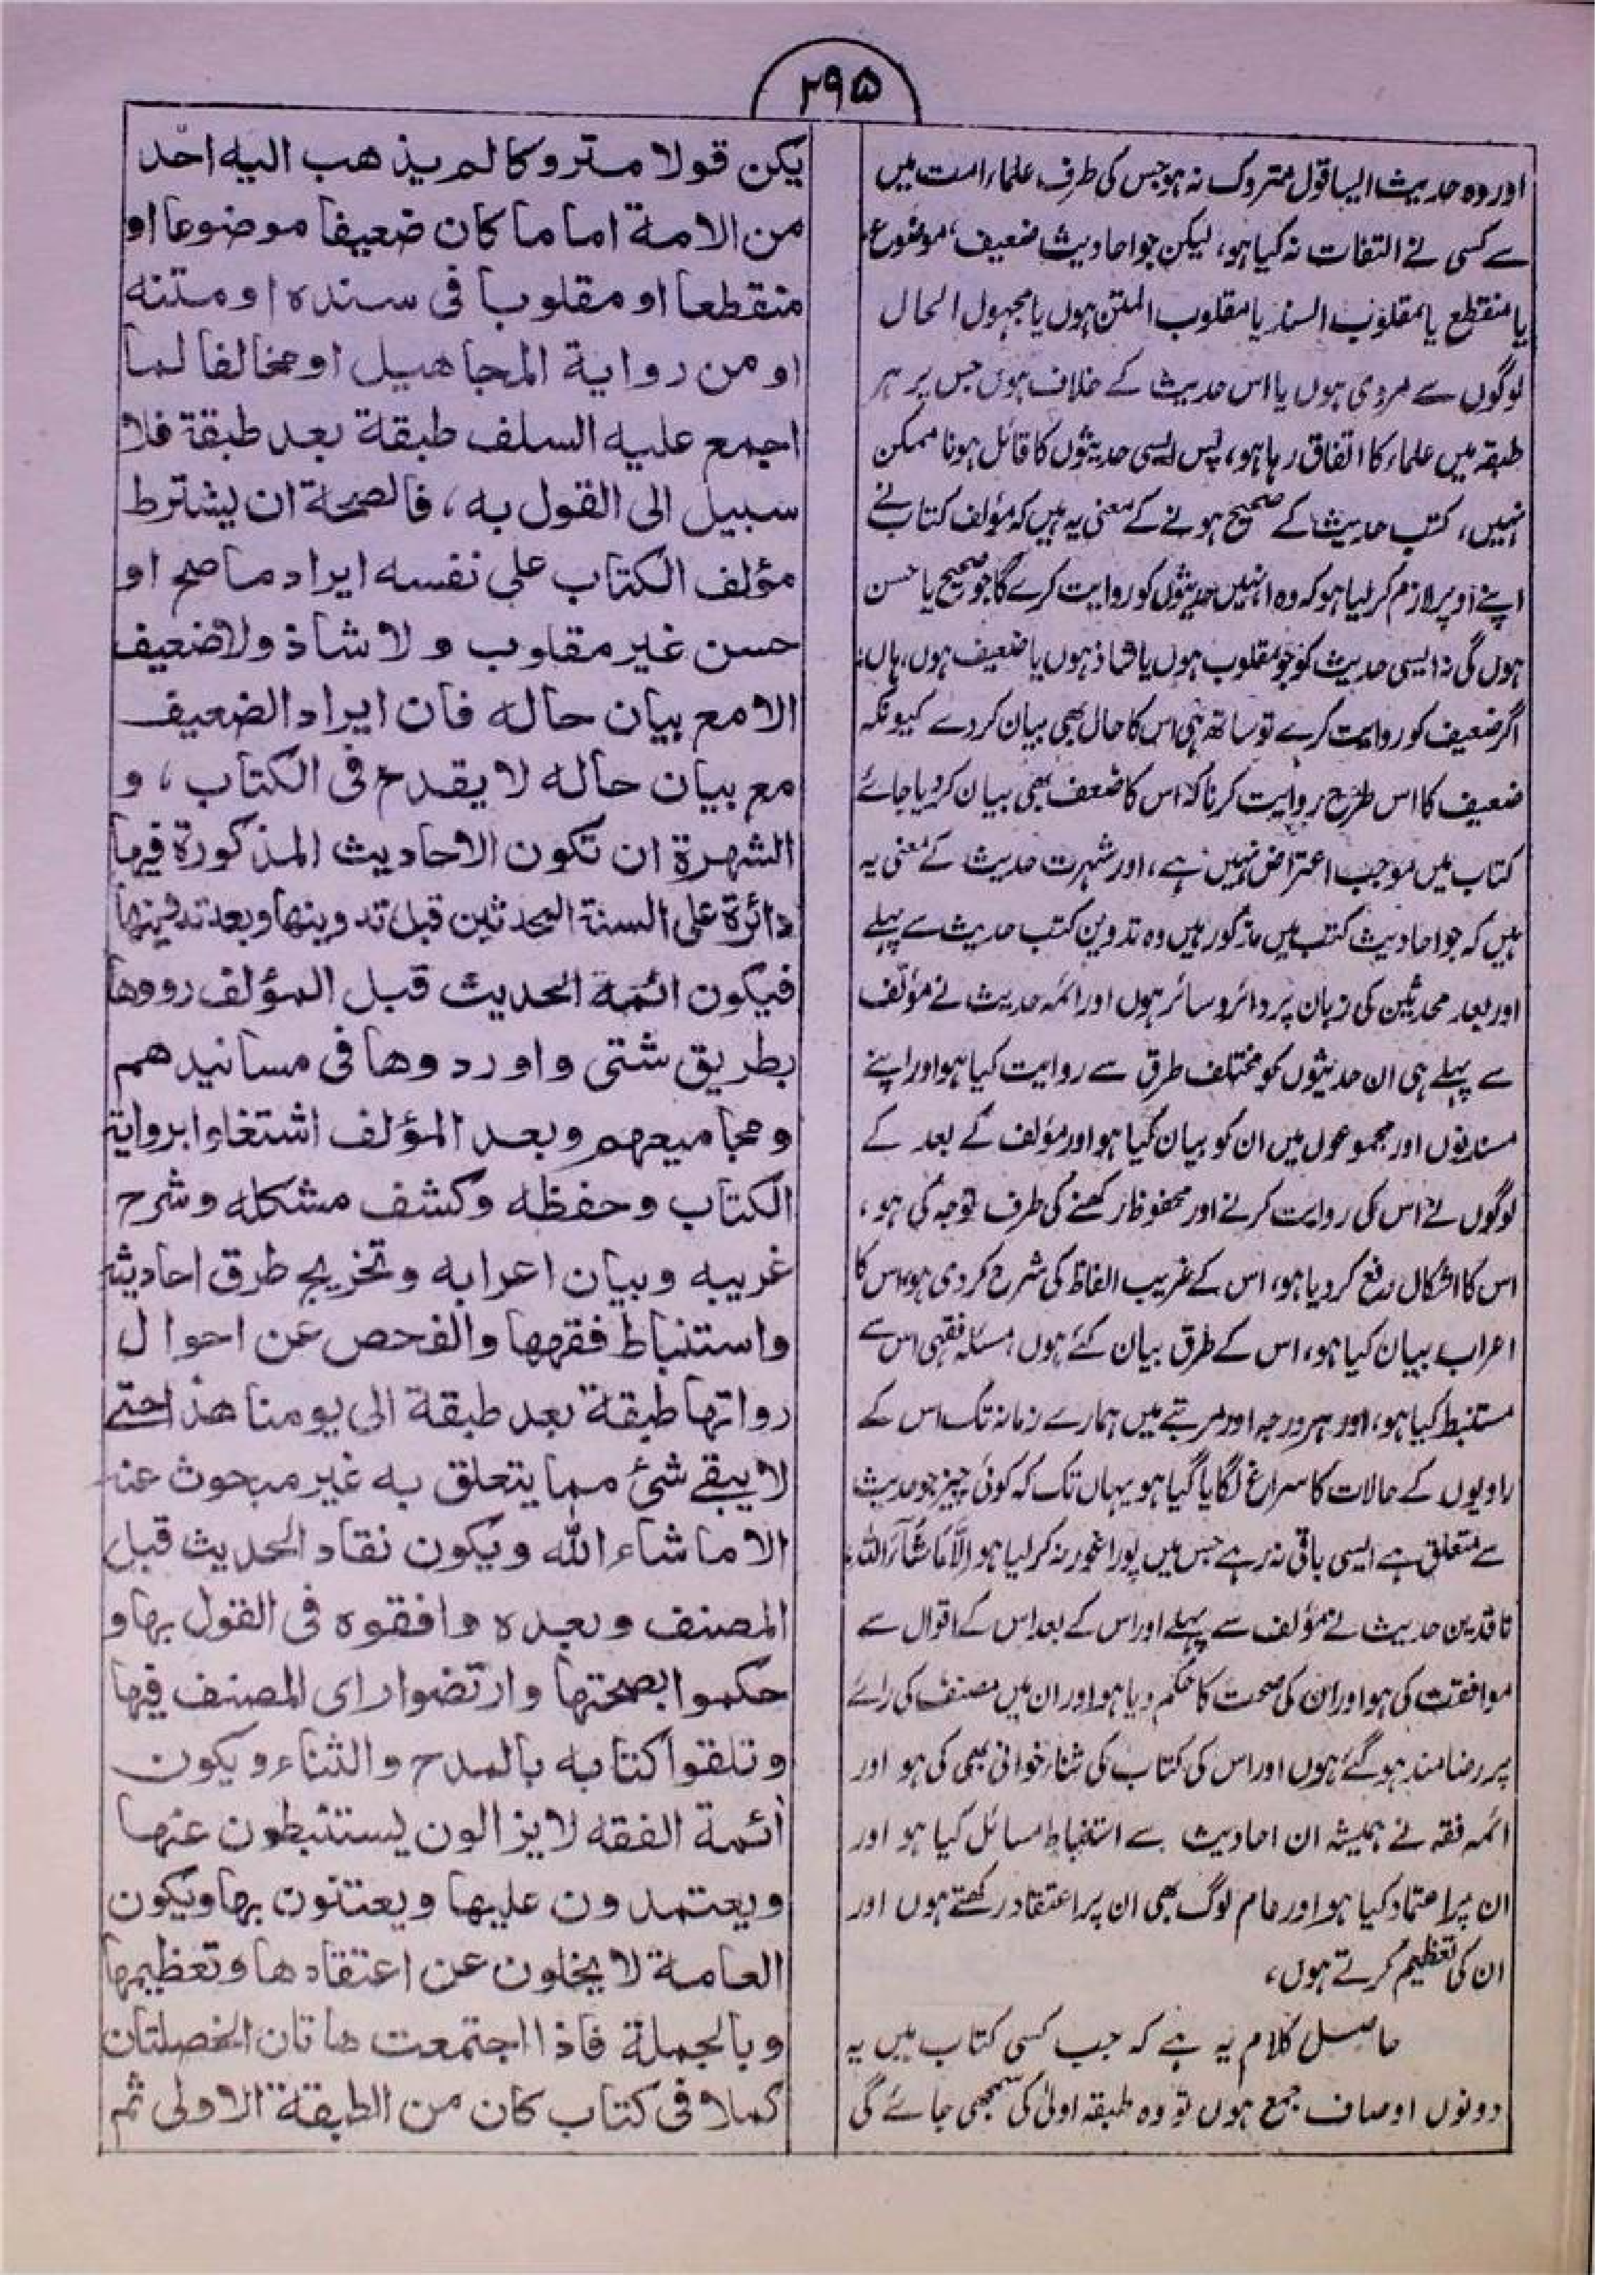 ۲۹۵
اور وہ حدیث ایسا قول متروک نہ ہو جس کی طرف علماء امت میں
سے کسی نے التفات نہ کیا ہو، لیکن جو احادیث ضعیف، موضوع،
یا منقطع یا مقلوب السند یا مقلوب المتن ہوں یا مجہول الحال
لوگوں سے مروی ہوں یا اس حدیث کے خلاف ہوں جس پر ہر
طبقہ میں علماء کا اتفاق رہا ہو، پس ایسی حدیثوں کا قائل ہونا ممکن
نہیں، کتب حدیث کے صحیح ہونے کے معنی یہ ہیں کہ مؤلف کتاب نے
اپنے اوپر لازم کر لیا ہو کہ وہ انہیں حدیثوں کو روایت کرے گا جو صحیح یا حسن
ہوں گی نہ ایسی حدیث کو جو مقلوب ہوں یا شاذ ہوں یا ضعیف ہوں، ہاں،
اگر ضعیف کو روایت کرے تو ساتھ ہی اس کا حال بھی بیان کر دے کیونکہ
ضعیف کا اس طرح روایت کرنا کہ اس کا ضعف بھی بیان کر دیا جائے
کتاب میں موجب اعتراض نہیں ہے، اور شہرت حدیث کے معنی یہ
ہیں کہ جو احادیث کتب میں مذکور ہیں وہ تدوین کتب حدیث سے پہلے
اور بعد محدثین کی زبان پر دائر و سائر ہوں اور ائمہ حدیث نے مؤلف
سے پہلے ہی ان حدیثوں کو مختلف طرق سے روایت کیا ہو اور اپنے
مسندوں اور مجموعوں میں ان کو بیان کیا ہو اور مؤلف کے بعد کے
لوگوں نے اس کی روایت کرنے اور محفوظ رکھنے کی طرف توجہ کی ہو،
اس کا اشکال رفع کر دیا ہو، اس کے غریب الفاظ کی شرح کر دی ہو، اس کا
اعراب بیان کیا ہو، اس کے طرق بیان کئے ہوں، مسئلہ فقہی اس سے
مستنبط کیا ہو، اور ہر درجہ اور مرتبے میں ہمارے زمانہ تک اس کے
راویوں کے حالات کا سراغ لگایا گیا ہو یہاں تک کہ کوئی چیز جو حدیث
سے متعلق ہے ایسی باقی نہ رہے جس میں پورا غور نہ کر لیا ہو الا ماشاء اللہ،
ناقدین حدیث نے مؤلف سے پہلے اور اس کے بعد اس کے اقوال سے
موافقت کی ہو اور ان کی صحت کا حکم دیا ہو اور ان میں مصنف کی رائے
پر رضامند ہو گئے ہوں اور اس کی کتاب کی ثناء خوانی بھی کی ہو اور
ائمہ فقہ نے ہمیشہ ان احادیث سے استنباط مسائل کیا ہو اور
ان پر اعتماد کیا ہو اور عام لوگ بھی ان پر اعتقاد رکھتے ہوں اور
ان کی تعظیم کرتے ہوں،
حاصل کلام یہ ہے کہ جب کسی کتاب میں یہ
دونوں اوصاف جمع ہوں تو وہ طبقہ اولیٰ کی سمجھی جائے گی
یکن قولا متروکا لم یذهب الیه احد
من الامة اما ما کان ضعیفا موضوعا او
منقطعا او مقلوبا فی سنده او متنه
او من روایة المجاهیل او مخالفا لما
اجمع علیه السلف طبقة بعد طبقة فلا
سبیل الی القول به، فالصحة ان یشترط
مؤلف الکتاب علی نفسه ایراد ما صح او
حسن غیر مقلوب و لا شاذ ولا ضعیف
الا مع بیان حاله فان ایراد الضعیف
مع بیان حاله لا یقدح فی الکتاب، و
الشهرة ان تکون الاحادیث المذکورة فیها
دائرة علی السنة المحدثین قبل تدوینها وبعد تدوینها
فیکون ائمة الحدیث قبل المؤلف رووها
بطریق شتی و اوردوها فی مسانیدهم
ومجامیعهم وبعد المؤلف اشتغلوا بروایة
الکتاب وحفظه وکشف مشکله وشرح
غریبه وبیان اعرابه وتخریج طرق احادیثه
واستنباط فقهها والفحص عن احوال
رواتها طبقة بعد طبقة الی یومنا هذا حتے
لا یبقے شئ مما یتعلق به غیر مبحوث عنه
الا ما شاء الله ویکون نقاد الحدیث قبل
المصنف وبعده وافقوه فی القول بها و
حکموا بصحتها وارتضوا رای المصنف فیها
وتلقوا کتابه بالمدح والثناء ویکون
أئمة الفقه لا یزالون یستنبطون عنها
ویعتمدون علیها ویعتنون بها ویکون
العامة لا یخلون عن اعتقادها وتعظیمها
وبالجملة فاذا اجتمعت هاتان الخصلتان
کملا فی کتاب کان من الطبقة الاولی ثم